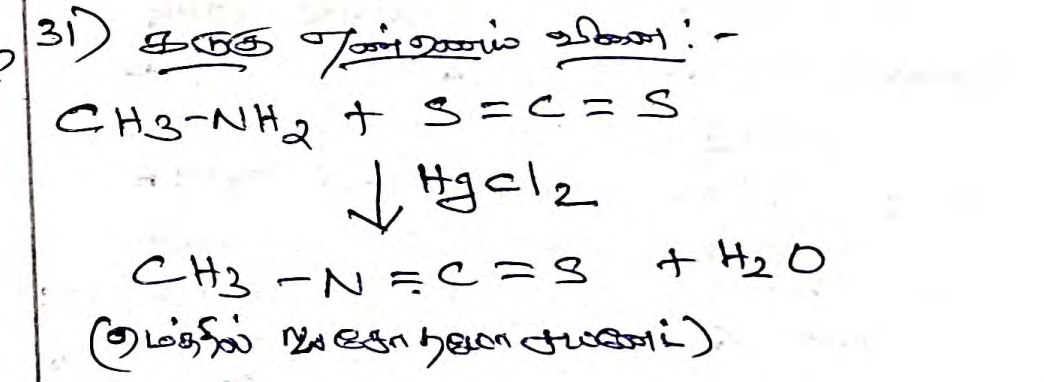 31) கடுகு எண்ணெய் வினை:-
CH3-NH2 + S=C=S
↓ HgCl2
CH3-N=C=S + H2O
(மெத்தில் ஐசோதயோசயனைட்)